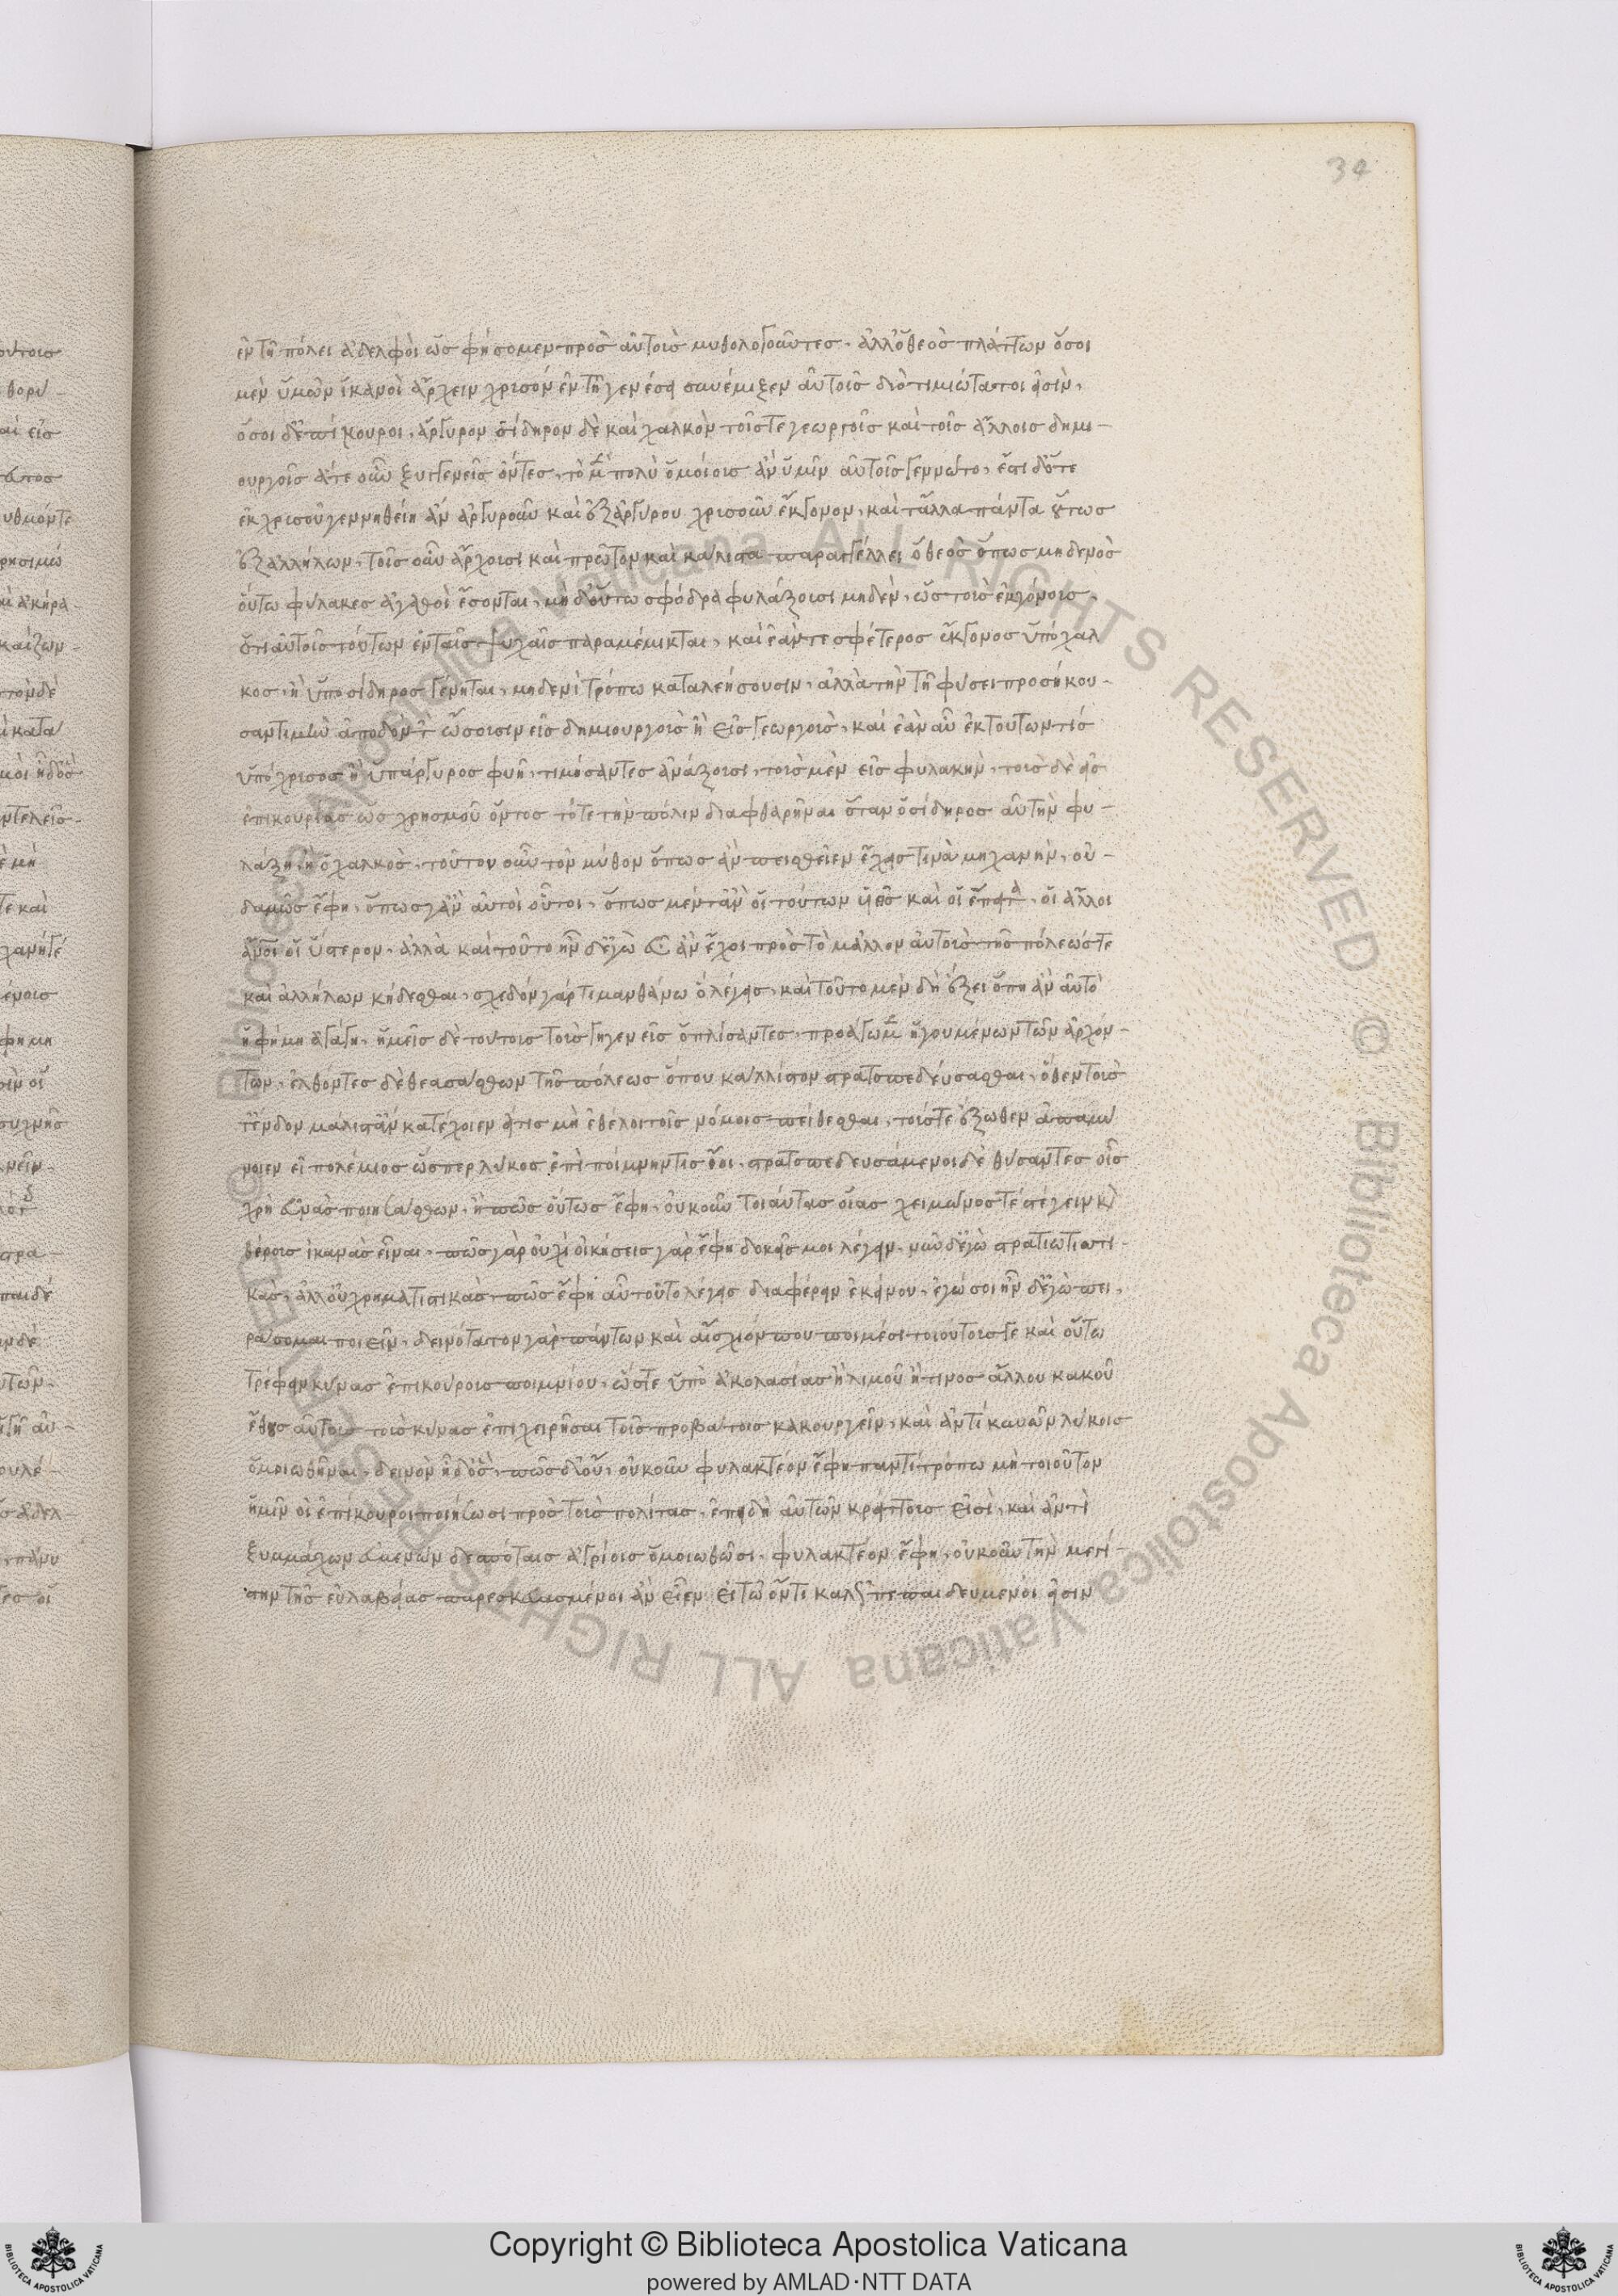 34
ἐν τῆ πόλει ἀδελφοὶ ὡς φήσομεν πρὸς αὐτοὺς μυθολογοῦντες · ἀλλ' ὁ θεὸς πλάττων ὅσοι
μὲν ὑμῶν ἱκανοὶ ἄρχειν χρυσὸν ἐν τῆ γενέσει συνέμιξεν αὐτοῖς διὸ τιμιώτατοι εἰσὶν ·
ὅσοι δ' ἐπίκουροι, ἄργυρον σίδηρον δὲ καὶ χαλκὸν τοῖς τε γεωργοῖς καὶ τοῖς ἄλλοις δημι-
ουργοῖς ἅτε οὖν ξυγγενεῖς ὄντες, τὸ μ(ὲν) πολὺ ὁμοίους ἂν ὑμῖν αὐτοῖς γεννῶτο, ἔστι δ' ὅτε
ἐκ χρυσοῦ γεννηθείη ἂν ἀργυροῦν καὶ ἐξ ἀργύρου χρυσοῦν ἔκγονον, καὶ τἆλλα πάντα οὕτως
ἐξ ἀλλήλων, τοῖς οὖν ἄρχουσι καὶ πρῶτον καὶ μάλιστα παραγγέλλει ὁ θεὸς ὅπως μηδενὸς
οὕτω φύλακες ἀγαθοὶ ἔσονται, μηδ' οὕτω σφόδρα φυλάξουσι μηδὲν, ὡς τοὺς ἐκγόνους,
ὅτι αὐτοῖς τούτων ἐν ταῖς ψυχαῖς παραμέμικται, καὶ ἐάν τε σφέτερος ἔκγονος ὑπόχαλ
κος, ἢ ὑποσίδηρος γένηται, μηδενὶ τρόπω κατελεήσουσιν, ἀλλὰ τὴν τῆ φύσει προσήκου-
σαν τιμὴν ἀποδόντ(ες) ὤσουσιν εἰς δημιουργοὺς ἢ εἰς γεωργοὺς, καὶ ἐὰν αὖ ἐκ τούτων τίς
ὑπόχρυσος ἢ ὑπάργυρος φυῆ, τιμήσαντες ἀνάξουσι, τοὺς μὲν εἰς φυλακὴν, τοὺς δὲ εἰς
ἐπικουρίας ὡς χρησμοῦ ὄντος τότε τὴν πόλιν διαφθαρῆναι ὅταν ὁ σίδηρος αὐτὴν φυ-
λάξη ἢ ὁ χαλκὸς, τοῦτον οὖν τὸν μῦθον ὅπως ἂν πεισθεῖεν ἔχεις τινὰ μηχανὴν, οὐ-
δαμῶς ἔφη, ὅπως γ' ἂν αὐτοὶ οὗτοι, ὅπως μέντ' ἂν οἱ τούτων ὑεῖς καὶ οἱ ἔπειτα, οἵ τ' ἄλλοι
ἄν(θρωπ)οι οἱ ὕστερον, ἀλλὰ καὶ τοῦτο ἦν δ' ἐγὼ εὖ ἂν ἔχοι πρὸς τὸ μᾶλλον αὐτοὺς τῆς πόλεώς τε
καὶ ἀλλήλων κήδεσθαι, σχεδὸν γάρ τι μανθάνω ὃ λέγεις, καὶ τοῦτο μὲν δὴ ἕξει ὅπη ἂν αὐτὸ
ἡ φήμη ἀγάγη, ἡμεῖς δὲ τούτους τοὺς γηγενεῖς ὁπλίσαντες, προάγωμ(εν) ἡγουμένων τῶν ἀρχόν-
των, ἐλθόντες δὲ θεασάσθων τῆς πόλεως ὅπου κάλλιστον στρατοπεδεύσασθαι, ὅθεν τοὺς
τ' ἔνδον μάλιστ' ἂν κατέχοιεν εἴ τις μὴ ἐθέλοι τοῖς νόμοις πείθεσθαι, τούς τε ἔξωθεν ἀπαμύ
νοιεν εἰ πολέμιος ὥσπερ λύκος ἐπὶ ποίμνην τις ἴοι, στρατοπεδευσάμενοι δὲ θύσαντες οἷς
χρὴ εὐνὰς ποιησάσθων, ἢ πῶς οὕτως ἔφη, οὐκοῦν τοιαύτας οἵας χειμῶνός τε στέγειν κ(αὶ)
θέρους ἱκανὰς εἶναι, πῶς γὰρ οὐχὶ οἰκήσεις γὰρ ἔφη δοκεῖς μοι λέγειν, ναὶ δ' ἐγὼ στρατιωτι-
κὰς, ἀλλ' οὐ χρηματιστικὰς, πῶς ἔφη αὖ τοῦτο λέγεις διαφέρειν ἐκείνου, ἐγώ σοι ἦν δ' ἐγὼ πει-
ράσομαι ποιεῖν, δεινότατον γὰρ πάντων καὶ αἴσχιόν που ποιμέσι τοιούτους γε καὶ οὕτω
τρέφειν κύνας ἐπικούρους ποιμνίου, ὥστε ὑπὸ ἀκολασίας ἢ λιμοῦ ἤ τινος ἄλλου κακοῦ
ἔθους αὐτοὺς τοὺς κύνας ἐπιχειρῆσαι τοῖς προβάτοις κακουργεῖν, καὶ ἀντὶ κυνῶν λύκοις
ὁμοιωθῆναι, δεινὸν ἦ δ' ὃς, πῶς δ' οὔ, οὐκοῦν φυλακτέον ἔφη παντὶ τρόπω μὴ τοιοῦτον
ἡμῖν οἱ ἐπίκουροι ποιήσωσι πρὸς τοὺς πολίτας, ἐπειδὴ αὐτῶν κρείττους εἰσὶ, καὶ ἀντὶ
ξυμμάχων εὐμενῶν δεσπόταις ἀγρίοις ὁμοιωθῶσι, φυλακτέον ἔφη, οὐκοῦν τὴν μεγί-
στην τῆς εὐλαβείας παρεσκευασμένοι ἂν εἶεν εἰ τῶ ὄντι καλῶς πεπαιδευμένοι εἰσὶν
Copyright © Biblioteca Apostolica Vaticana
powered by AMLAD·NTT DATA